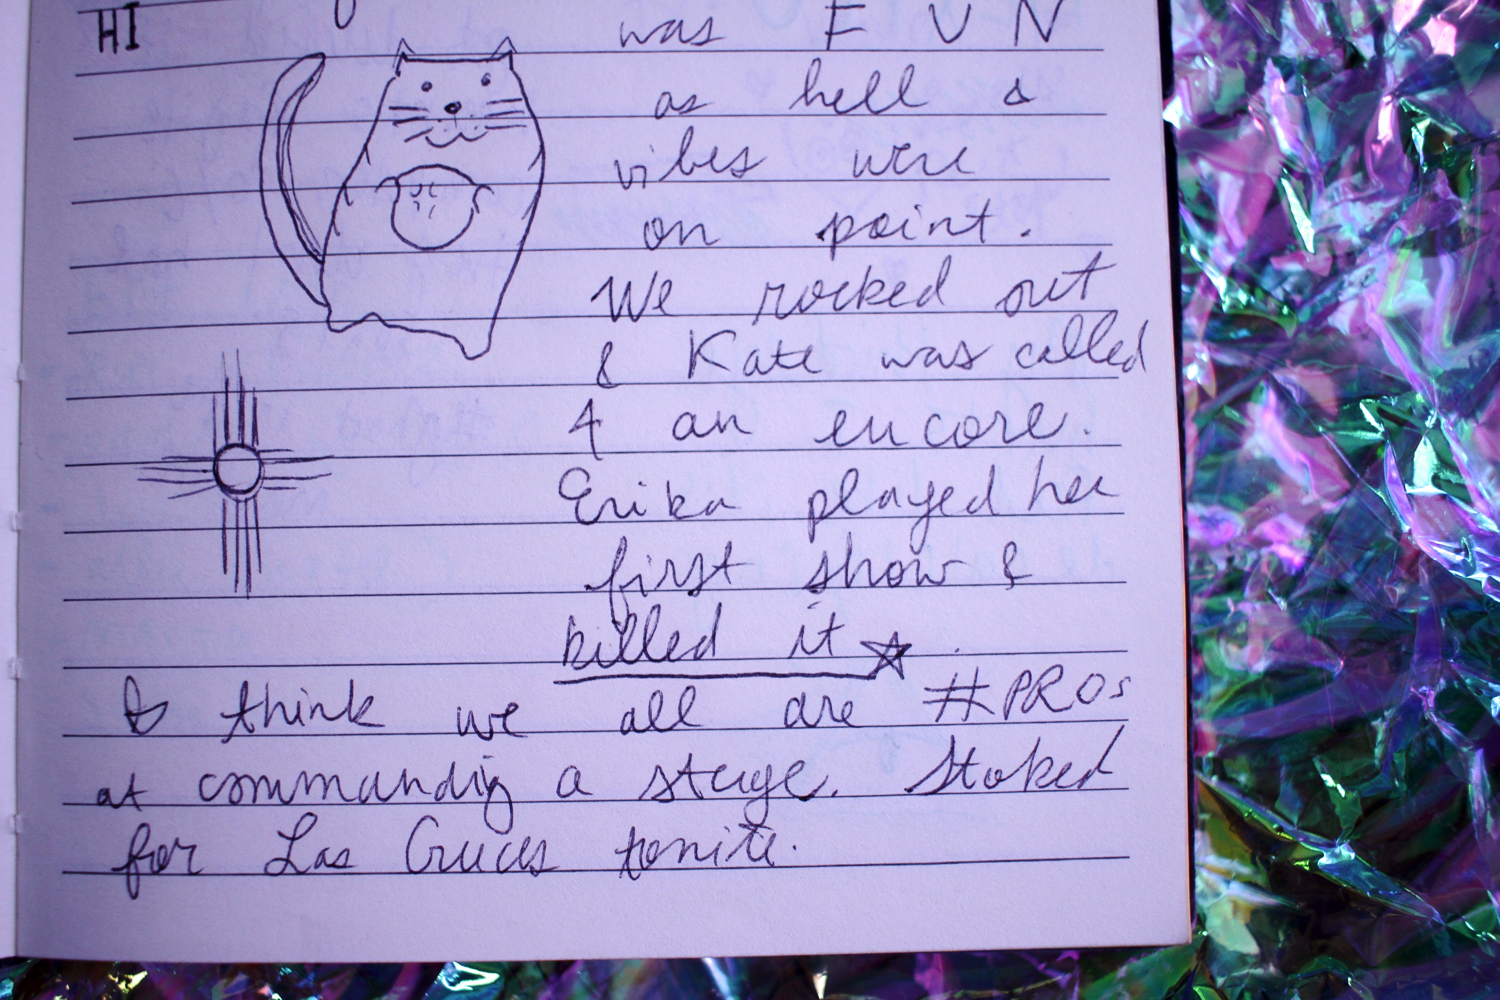 HI
was F U N
as hell &
vibes were
on point.
We rocked out
& Kate was called
4 an encore.
Erika played her
first show &
killed it
I think we all are #PROs
at commanding a stage. Stoked
for Las Cruces tonite.